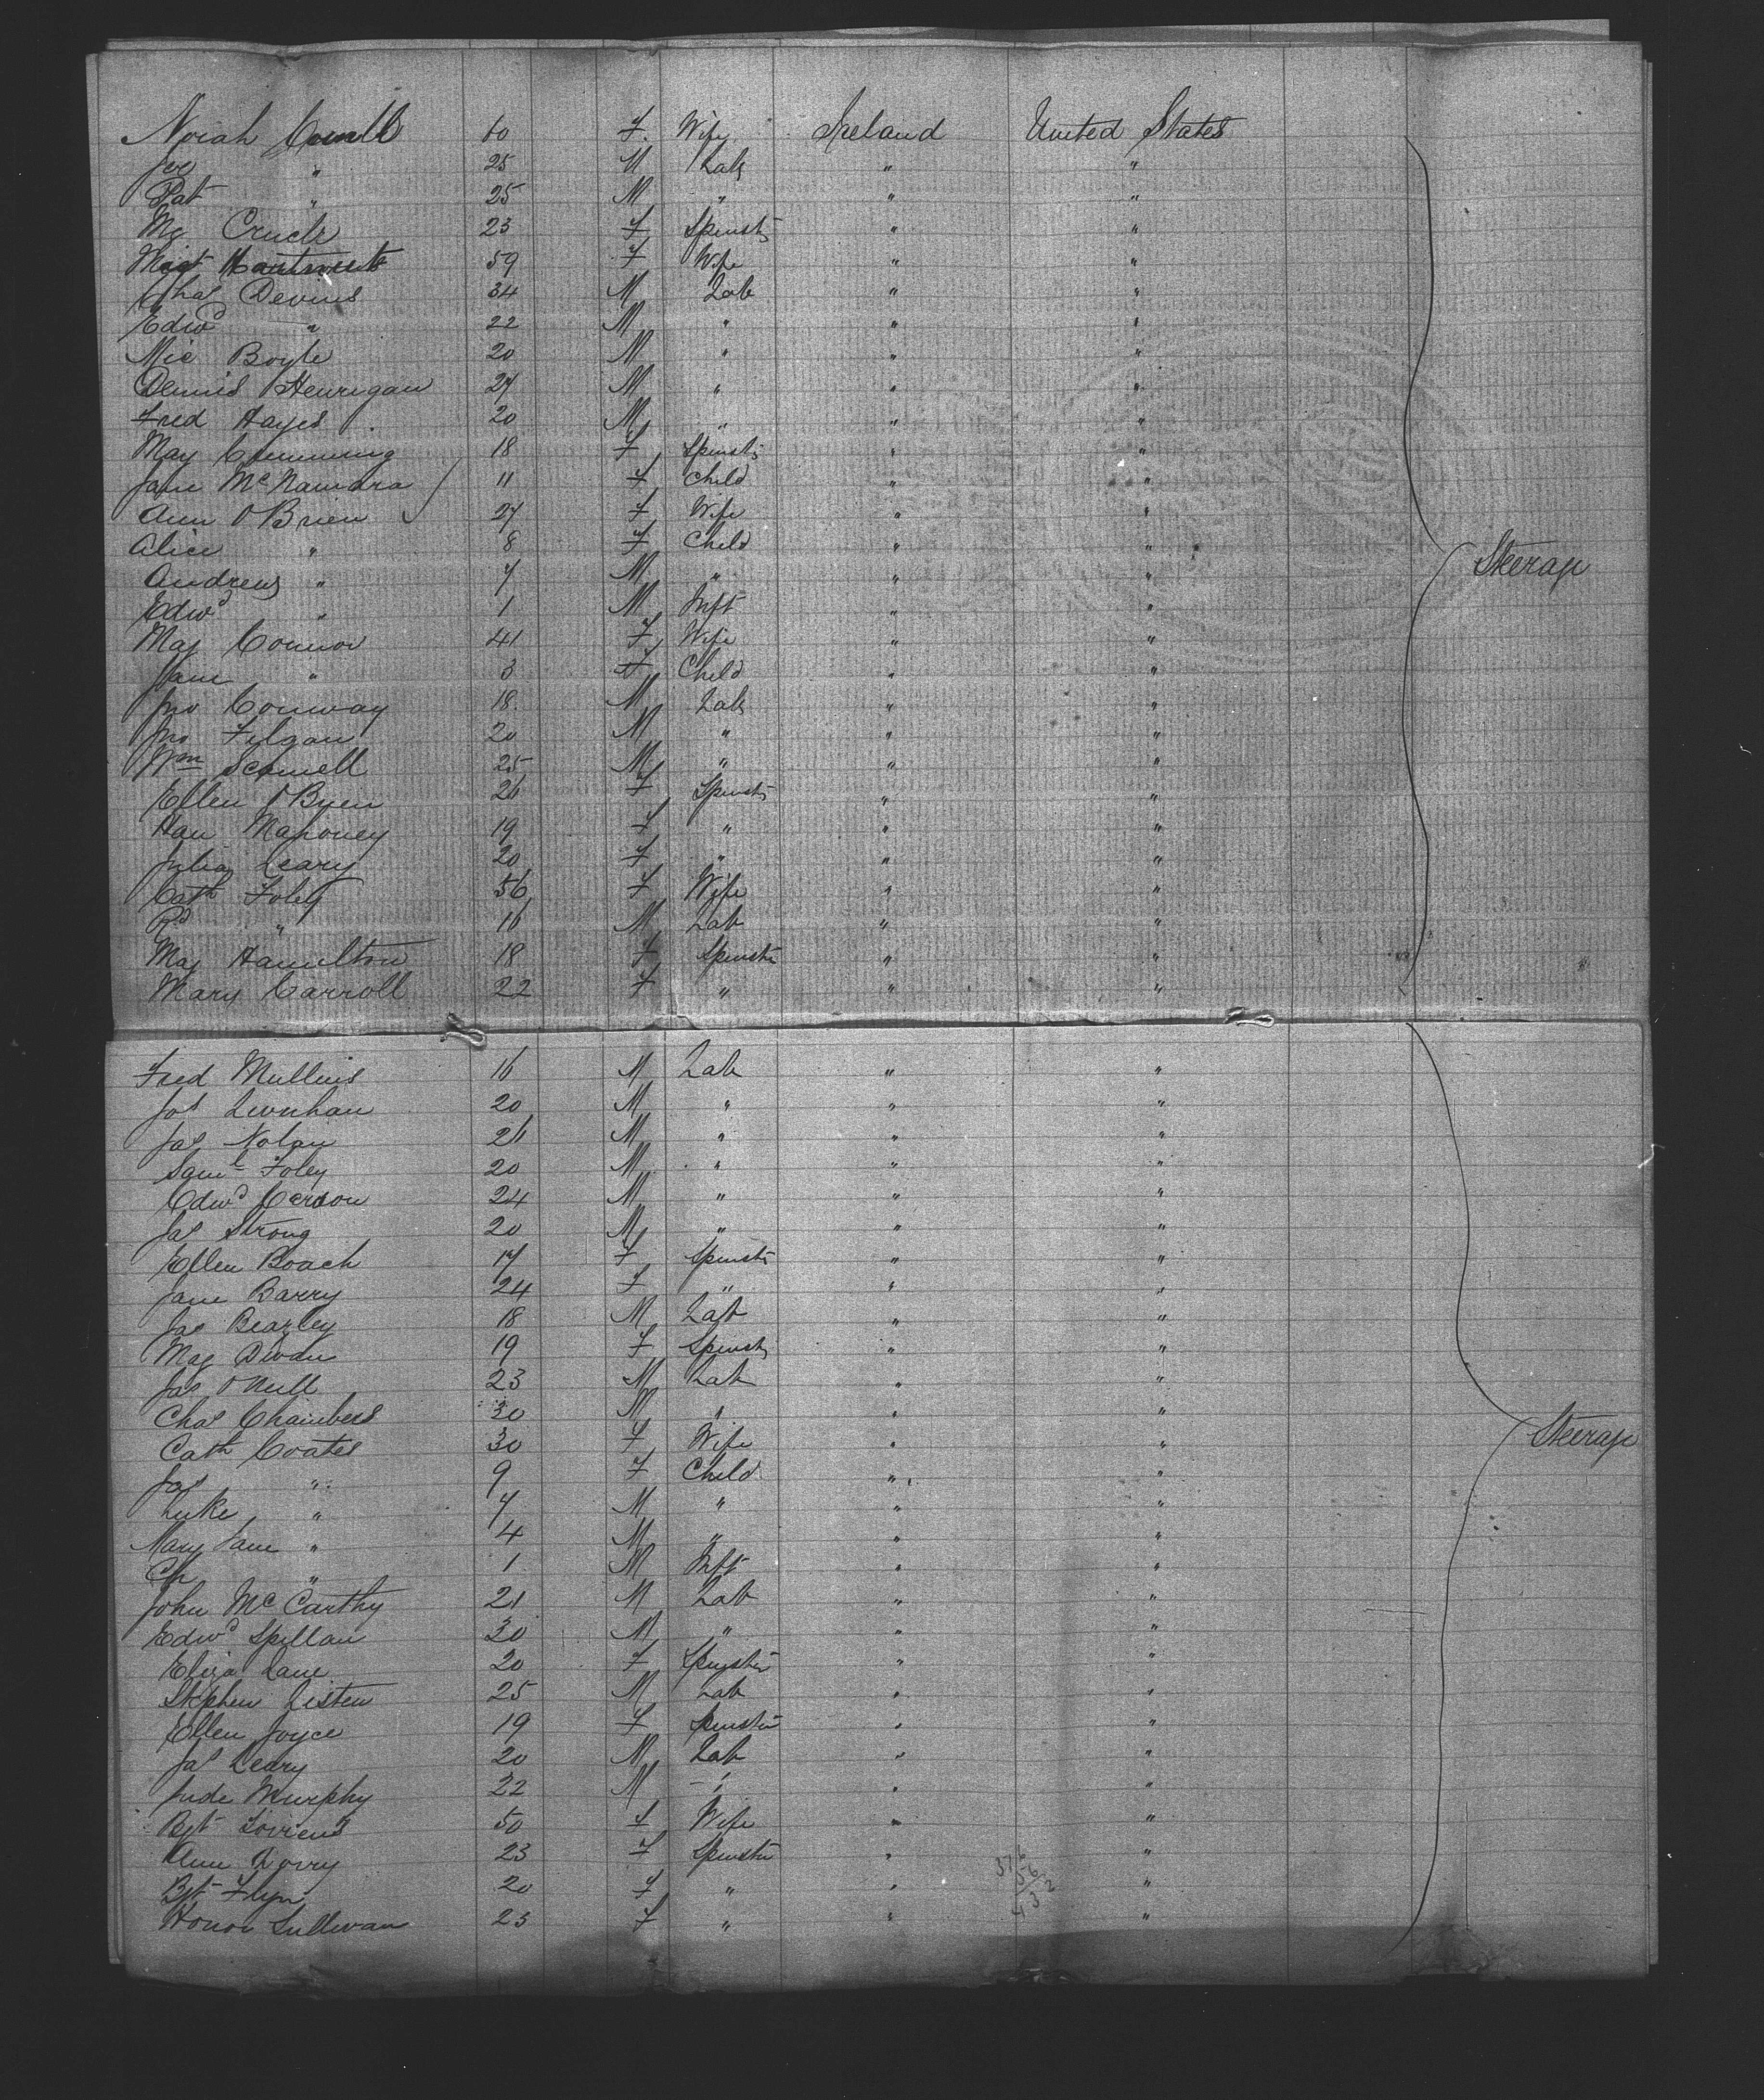 Norah 60 F. Wife Ireland United States
Jno " 25 M Lab " "
Pat " 25 M " " "
Mg 23 F Spinstr " "
Mgt 59 F Wife " "
Chas Devins 34 M Lab " "
Edwd " 22 M " " "
Mic Boyle 20 M " " "
Dennis Henrigan 27 M " " "
Fred Hayes 20 M " " "
May Cumming 18 F Spinstr " "
Jane McNamara 11 F Child " "
Ann OBrien 27 F Wife " "
Alice " 8 F Child " "
Andrew " 7 M " " "
Edwd " 1 M Inft " "
Steerage
Mag Connor 41 F Wife " "
Jane " 3 F Child " "
Jno Conway 18 M Lab " "
Jno 20 M " " "
Wm 25 M " " "
Ellen OBrien 26 F Spinstr " "
Han Mahoney 19 F " " "
Julia Leary 20 F " " "
Cath Foley 56 F Wife " "
Rd " 16 M Lab " "
Mag Hamilton 18 F Spinstr " "
Mary Carroll 22 F " " "
Fred Mullins 16 M Lab " "
Jos 20 M " " "
Jas Nolan 26 M " " "
Saml Foley 20 M " " "
Edwd 24 M " " "
Jas Strong 20 M " " "
Ellen Boach 17 F Spinstr " "
Jane Barry 24 F " " "
Jas Beazley 18 M Lab " "
Mag 19 F Spinstr " "
Jas ONeill 23 M Lab " "
Chas Chambers 30 M " " "
Cath Coates 30 F Wife " "
Steerage
Jas " 9 F Child " "
Luke " 7 M " " "
Mary Jane " 4 M " " "
Ch " 1 M Inft " "
John McCarthy 21 M Lab " "
Edwd Spillan 30 M " " "
Eliza Lane 20 F Spinster " "
Stephen Listen 25 M Lab " "
Ellen Joyce 19 F Spinster " "
Jas Leary 20 M Lab " "
Jude Murphy 22 M " " "
Bgt 50 F Wife " "
Ann 23 F Spinster " "
Bgt Flyn 20 F " " "
Honor Sullivan 23 F " " "